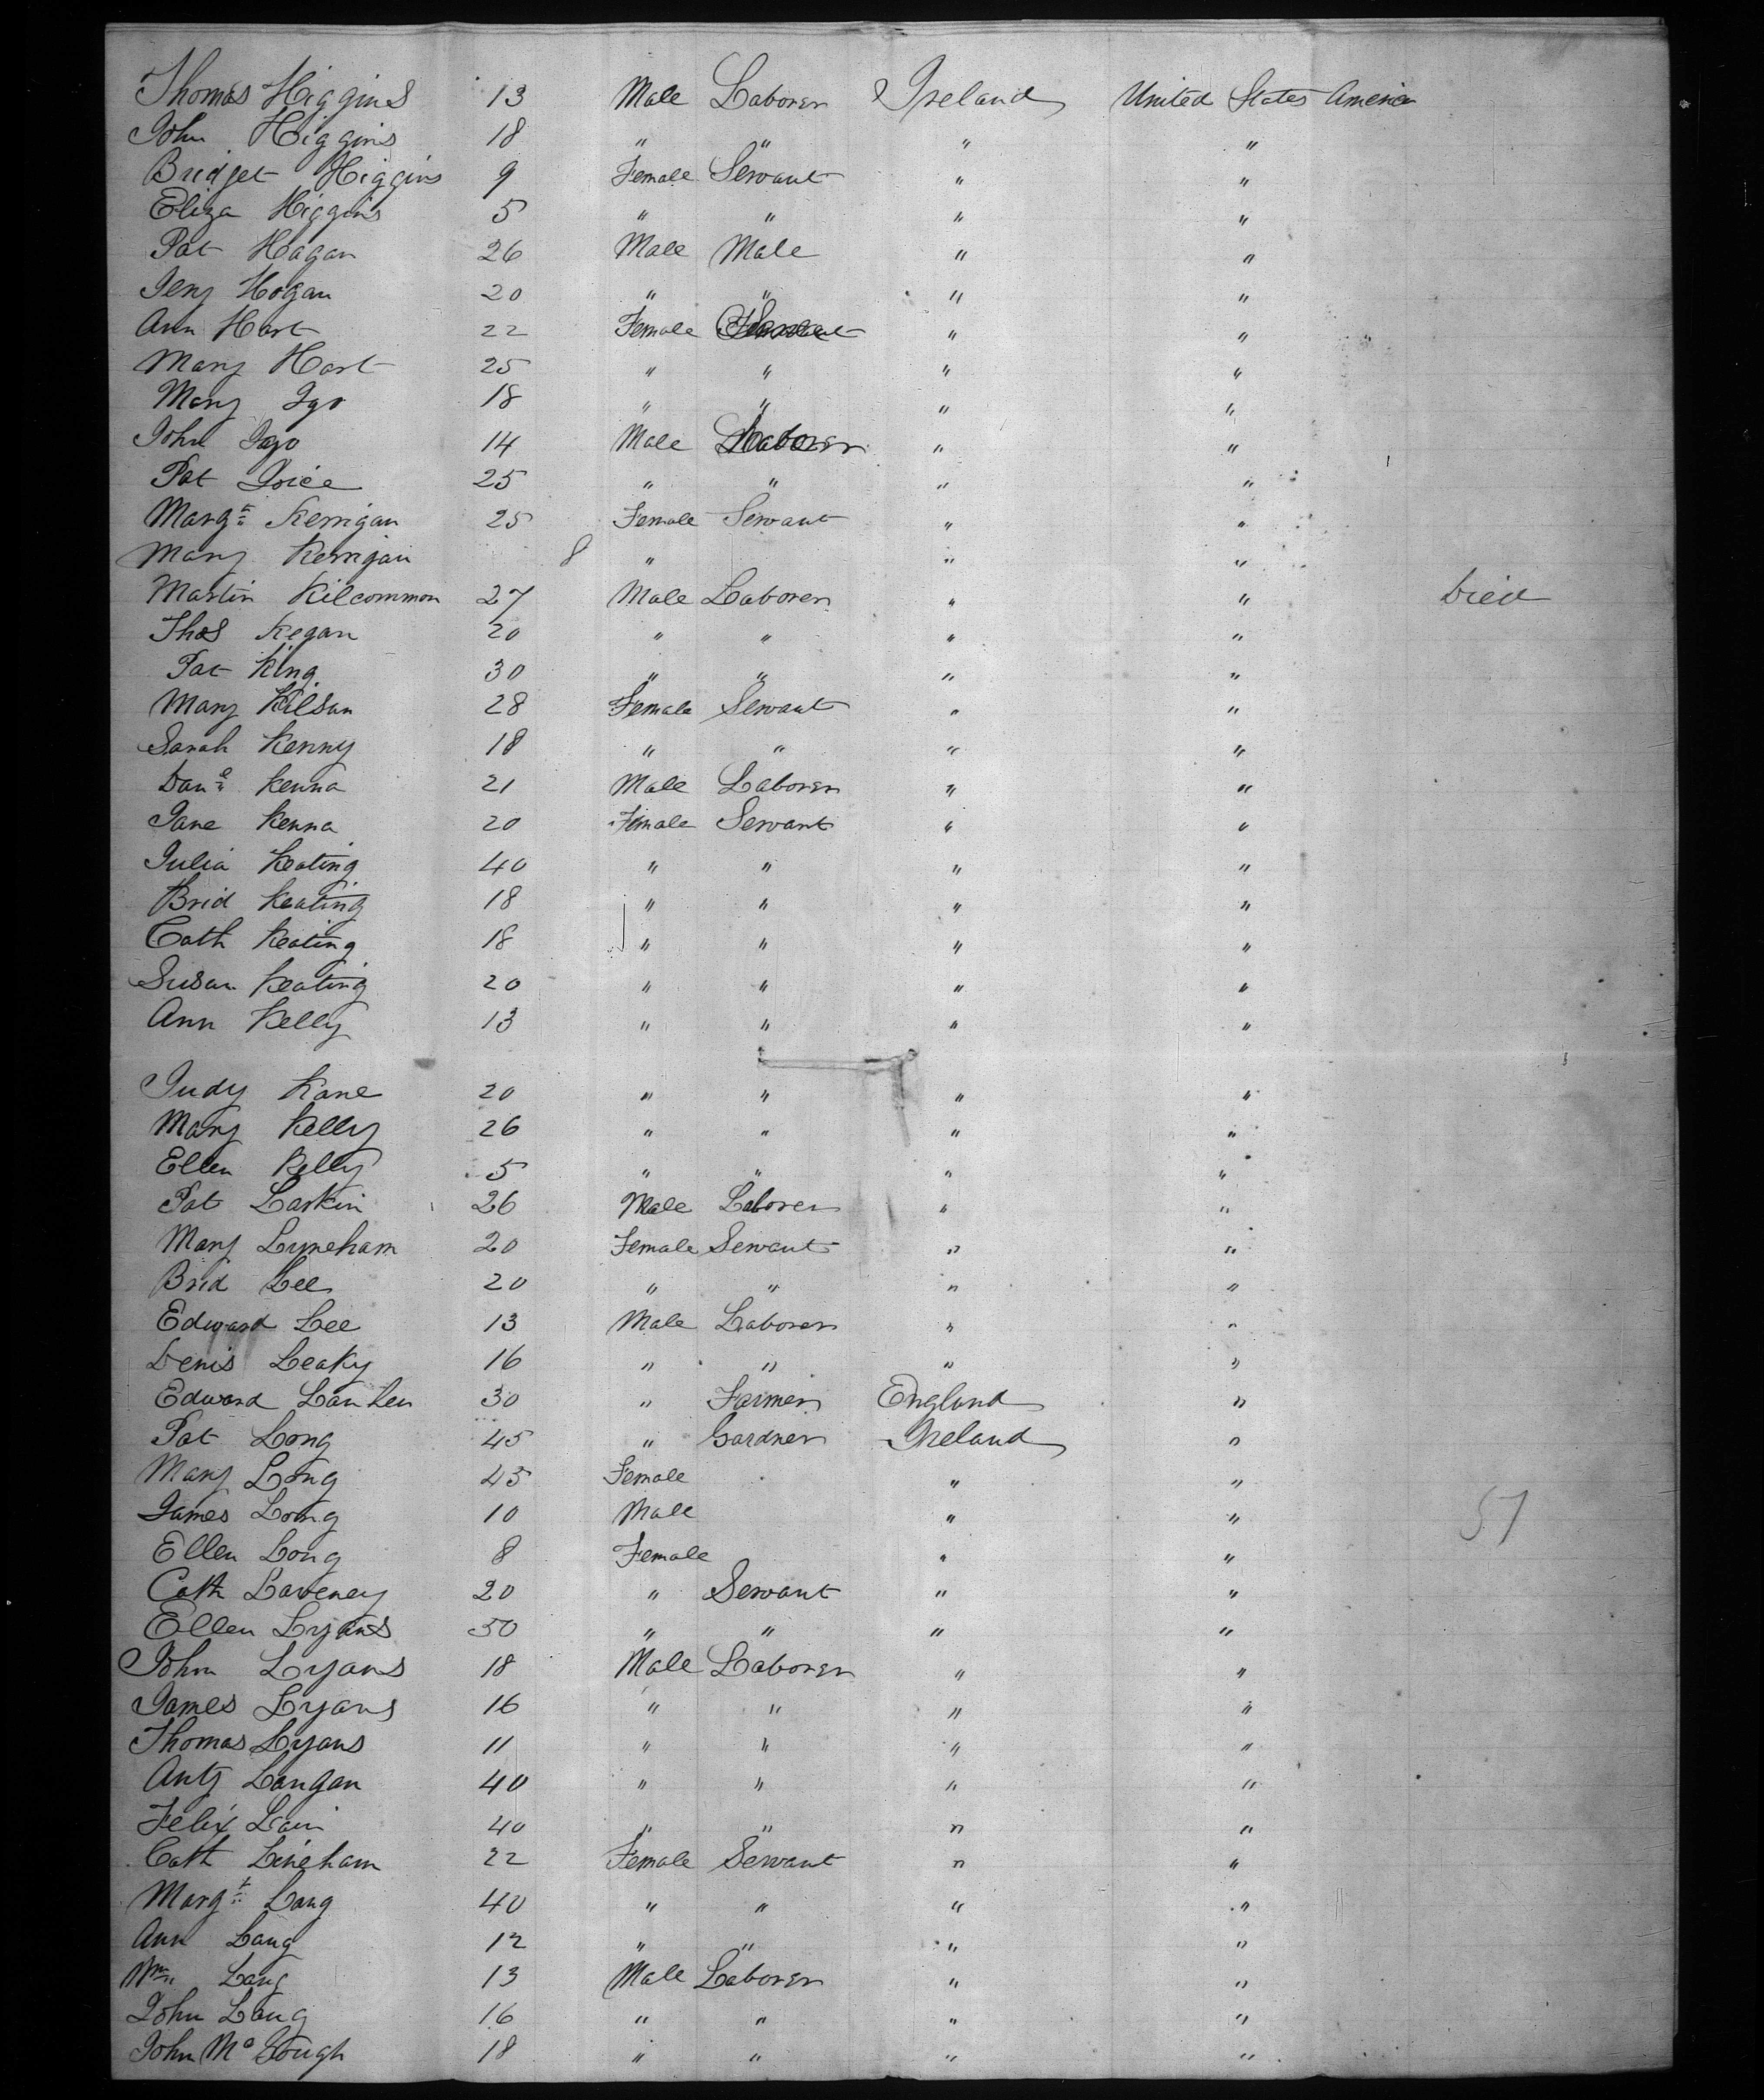 Thomas Higgins 13 Male Laborer Ireland United States America
John Higgins 18 " " " "
Bridget Higgins 9 Female Servant " "
Eliza Higgins 5 " " " "
Pat Hagan 26 Male Male " "
Jeny Hogan 20 " " " "
Ann Hart 22 Female " "
Mary Hart 25 " " " "
Mary Igo 18 " " " "
John Igo 14 Male Laborer " "
Pat Joice 25 " " " "
Margt Kerrigan 25 Female Servant " "
Mary Kerrigan 8 " " "
Martin Kilcommon 27 Male Laborer " " Died
Thos Kegan 20 " " " "
Pat King 30 " " " "
Mary Kilsun 28 Female Servant " "
Sarah Kenny 18 " " " "
Danl Kenna 21 Male Laborer " "
Jane Kenna 20 Female Servant " "
Julia Keating 40 " " " "
Brid Keating 18 " " " "
Cath Keating 18 " " " "
Susan Keating 20 " " " "
Ann Kelly 13 " " " "
Judy Kane 20 " " " "
Mary Kelly 26 " " " "
Ellen Kelly 5 " " " "
Pat Larkin 26 Male Laborer " "
Mary Lyneham 20 Female Servant " "
Brid Lee 20 " " " "
Edward Lee 13 Male Laborer " "
Denis Leaky 16 " " " "
Edward 30 " Farmer England "
Pat Long 45 " Gardner Ireland "
Mary Long 45 Female " "
James Long 10 Male " " 57
Ellen Long 8 Female " "
Cath Laveney 20 " Servant " "
Ellen Lyans 50 " " " "
John Lyans 18 Male Laborer " "
James Lyans 16 " " " "
Thomas Lyans 11 " " " "
Anty Langan 40 " " " "
Felix Lain 40 " " " "
Cath Lineham 22 Female Servant " "
Margt Lang 40 " " " "
Ann Lang 12 " " " "
Wm Lang 13 Male Laborer " "
John Lang 16 " " " "
John McGough 18 " " " "